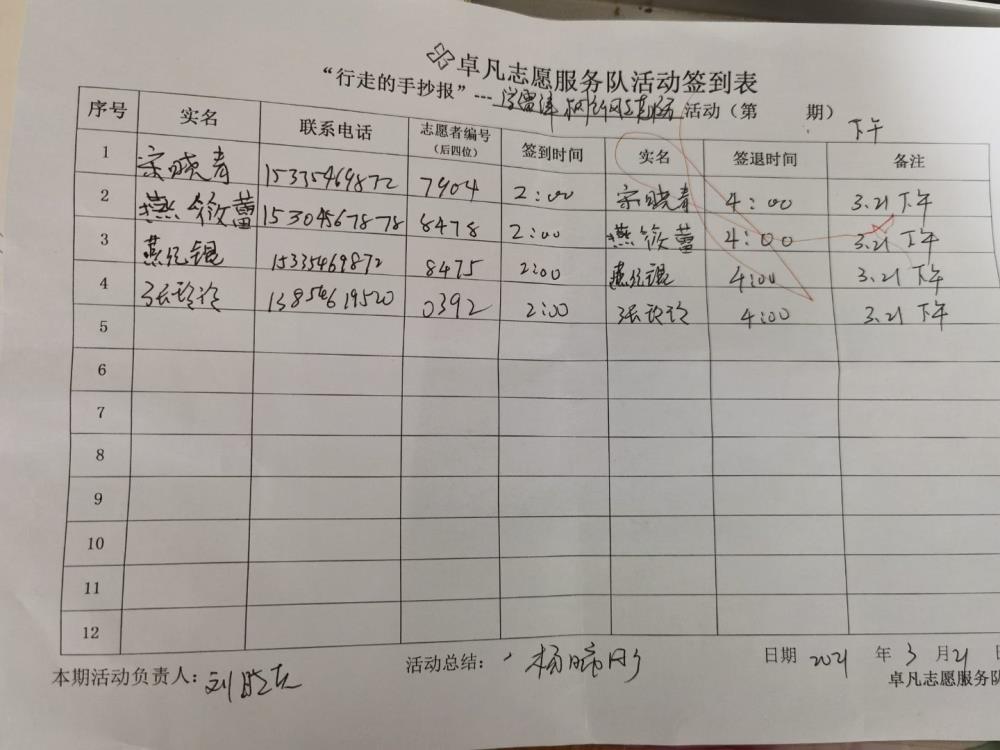 卓凡志愿服务队活动签到表
“行走的手抄报”---学雷锋 活动(第 期)
下午
序号 实名 联系电话 志愿者编号(后四位) 签到时间 实名 签退时间 备注
1 宗晓青 15335469872 7904 2:00 宗晓青 4:00 3.21下午
2 燕筱蕾 15304567878 8478 2:00 燕筱蕾 4:00 3.21下午
3 燕 锟 15335469872 8475 2:00 燕 锟 4:00 3.21下午
4 张 玲 13854619520 0392 2:00 张 玲 4:00 3.21下午
5
6
7
8
9
10
11
12
本期活动负责人:刘晓 活动总结: 杨晓 日期 2021 年 3 月 21 日
卓凡志愿服务队